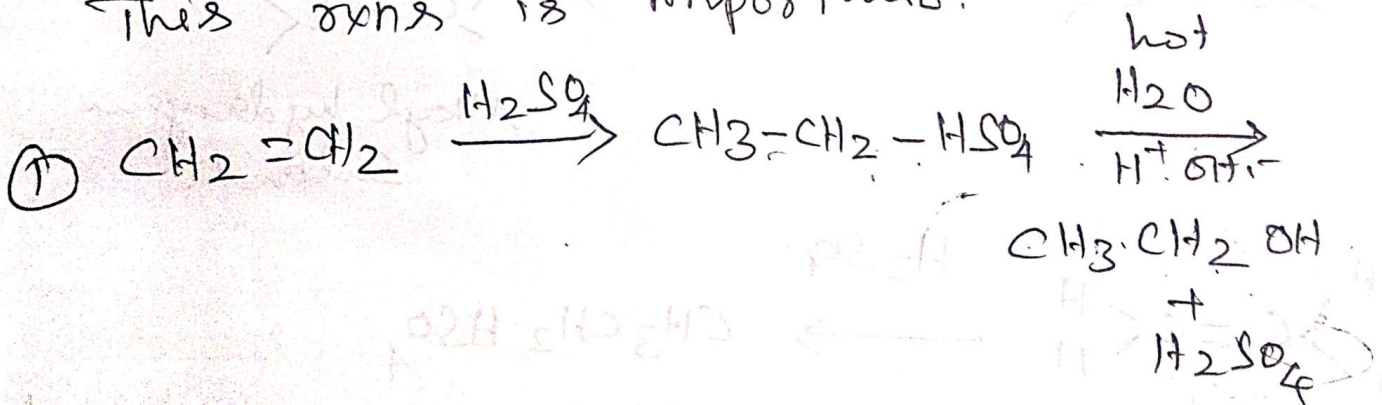 This rxns is
hot
① CH2 = CH2 H2SO4 → CH3-CH2-HSO4 H2O →
H+ OH-
CH3.CH2 OH
+
H2SO4